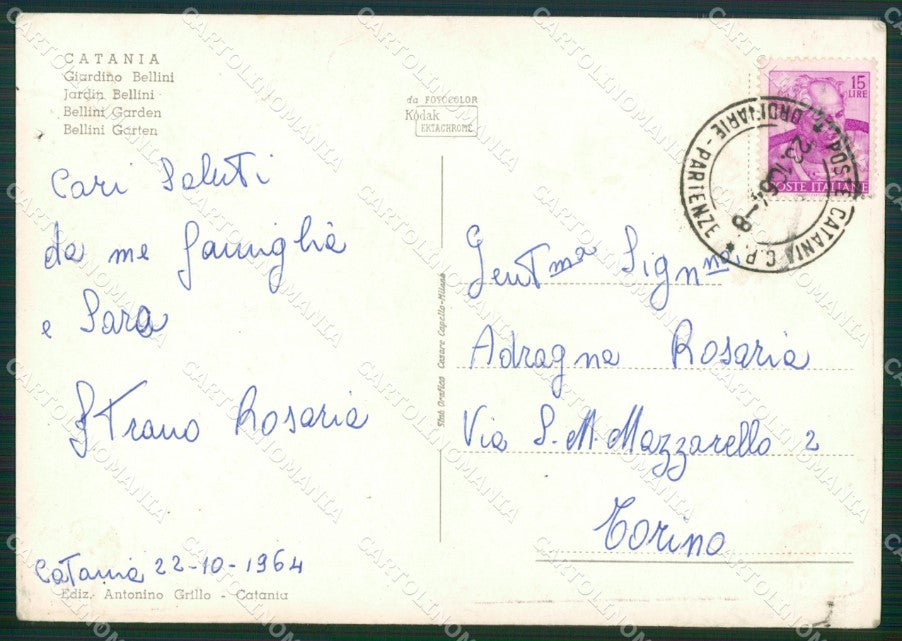 CATANIA
Giardino Bellini
Jardin Bellini
Bellini Garden
Bellini Garten
da FOTOCOLOR
Kodak
EKTACHROME
15
LIRE
POSTE ITALIANE
POSTE CATANIA C.P. * PARTENZE - ORDINARIE
23.10.64-8
Cari Saluti
da me famiglia
e Sara
Strano Rosaria
Catania 22-10-1964
Ediz. Antonino Grillo - Catania
Stab Grafico Cesare Capello-Milano
Gentma Signna
Adragna Rosaria
Via S.M. Mazzarello 2
Torino
CARTOLINOMANIA